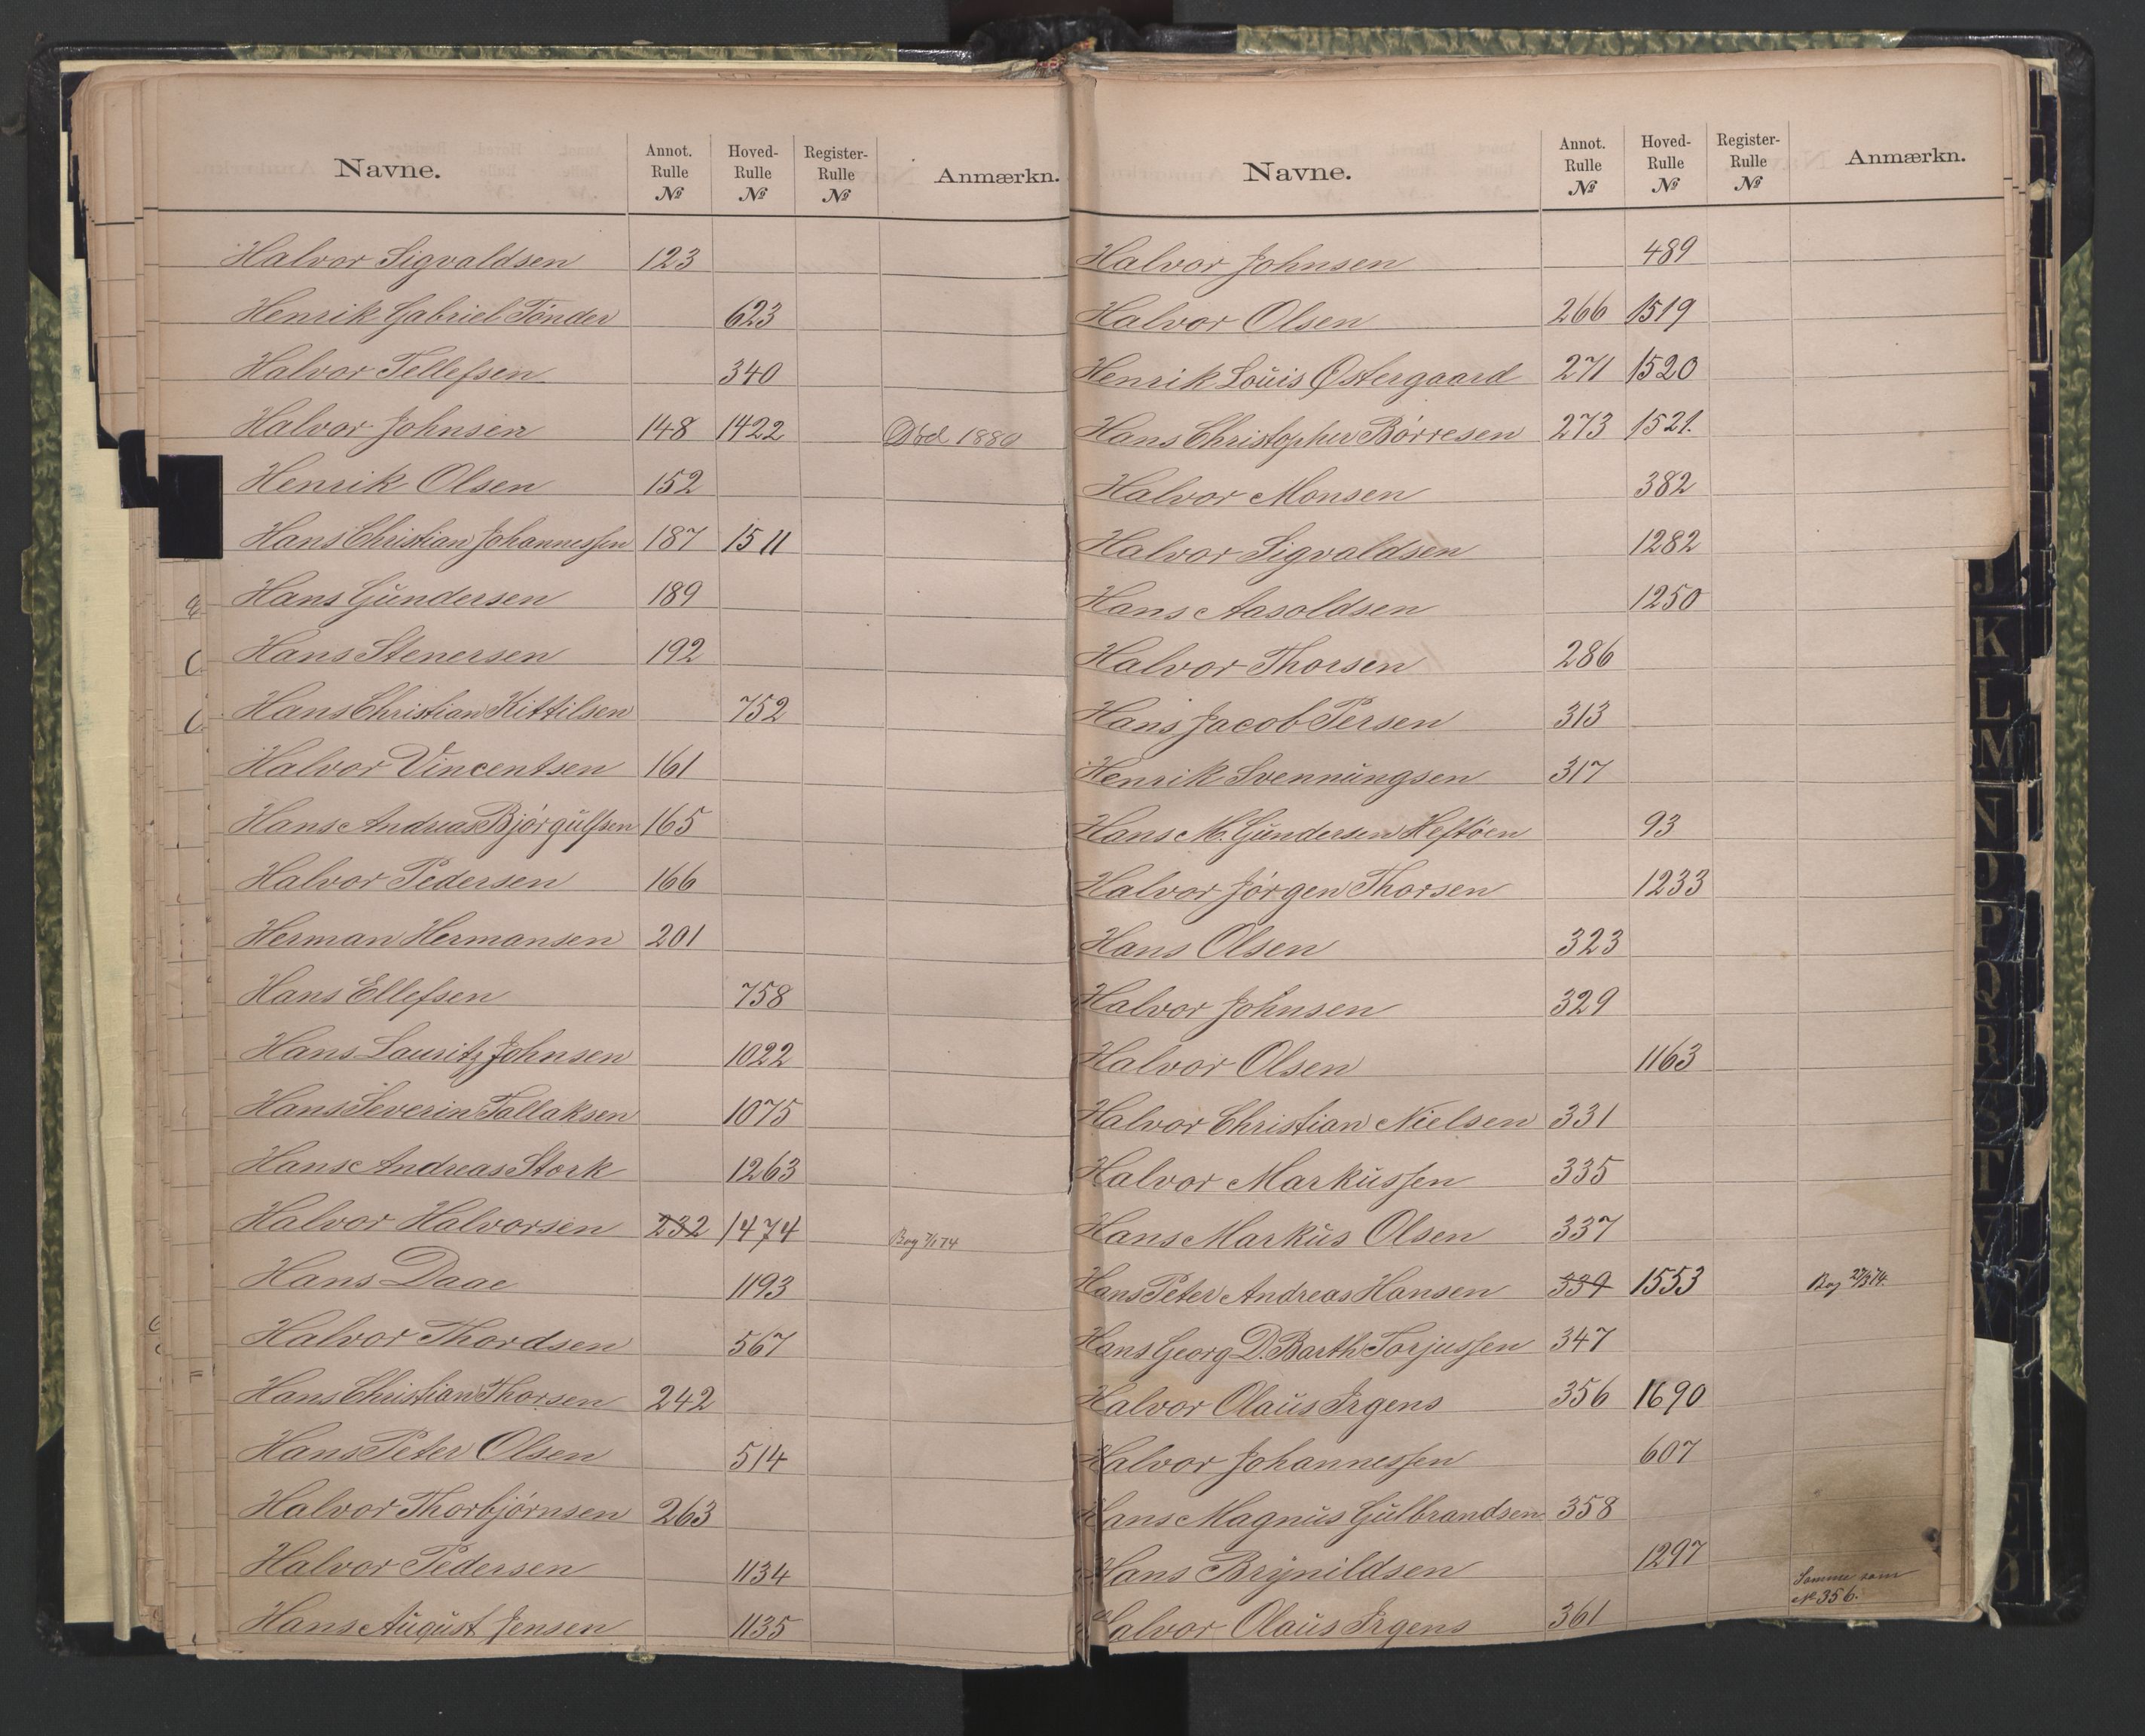 Navne. Annot. Rulle № Hoved-Rulle № Register-Rulle № Anmærkn.
Halvor Sigvaldsen 123
Henrik Gabriel Tönder 623
Halvor Tellefsen 340
Halvor Johnsen 148 1422 Död 1880
Henrik Olsen 152
Hans Christian Johannessen 187 1511
Hans Gundersen 189
Hans Stenersen 192
Hans Christian Kittilsen 752
Halvor Vincentsen 161
Hans Andreas Bjørgulfsen 165
Halvor Pedersen 166
Herman Hermansen 201
Hans Ellefsen 758
Hans Lauritz Johnsen 1022
Hans Severin Tallaksen 1075
Hans Andreas Stork 1263
Halvor Halvorsen 232 1474 Bog 7/1 74
Hans Daae 1193
Halvor Thordsen 567
Hans Christian Thorsen 242
Hans Peter Olsen 514
Halvor Thorbjörnsen 263
Halvor Pedersen 1134
Hans August Jensen 1135
Navne. Annot. Rulle № Hoved-Rulle № Register-Rulle № Anmærkn.
Halvor Johnsen 489
Halvor Olsen 266 1519
Henrik Louis Østergaard 271 1520
Hans Christopher Börresen 273 1521.
Halvor Monsen 382
Halvor Sigvaldsen 1282
Hans Aasoldsen 1250
Halvor Thorsen 286
Hans Jacob Persen 313
Henrik Svennungsen 317
Hans M. Gundersen Heftöen 93
Halvor Jörgen Thorsen 1233
Hans Olsen 323
Halvor Johnsen 329
Halvor Olsen 1163
Halvor Christian Nielsen 331
Halvor Markussen 335
Hans Markus Olsen 337
Hans Peter Andreas Hansen 339 1553 Bog 27/3 74.
Hans Georg D. Barth Torjussen 347
Halvor Olaus Irgens 356 1690
Halvor Johannessen 607
Hans Magnus Gulbrandsen 358
Hans Brynildsen 1297
Halvor Olaus Irgens 361 Samme som № 356.
J
K
L
M
N
O
P
Q
R
S
T
V
W